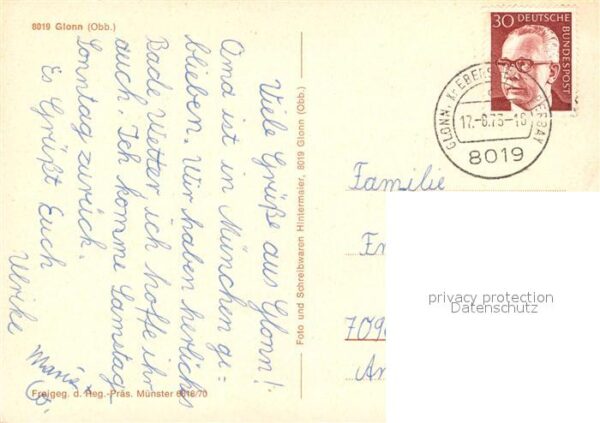 8019 Glonn (Obb.)
Viele Grüße aus Glonn!
Oma ist in München ge=
blieben. Wir haben herliches
Bade Wetter, ich hoffe ihr
auch. Ich komme Samstag,
Sonntag zurück.
Es Grüßt Euch
Ulrike
Freigeg. d. Reg.-Präs. Münster 6818/70
Foto und Schreibwaren Hintermaier, 8019 Glonn (Obb.)
30 DEUTSCHE
BUNDESPOST
GLONN
17.-8.73-18
8019
Familie
privacy protection
Datenschutz